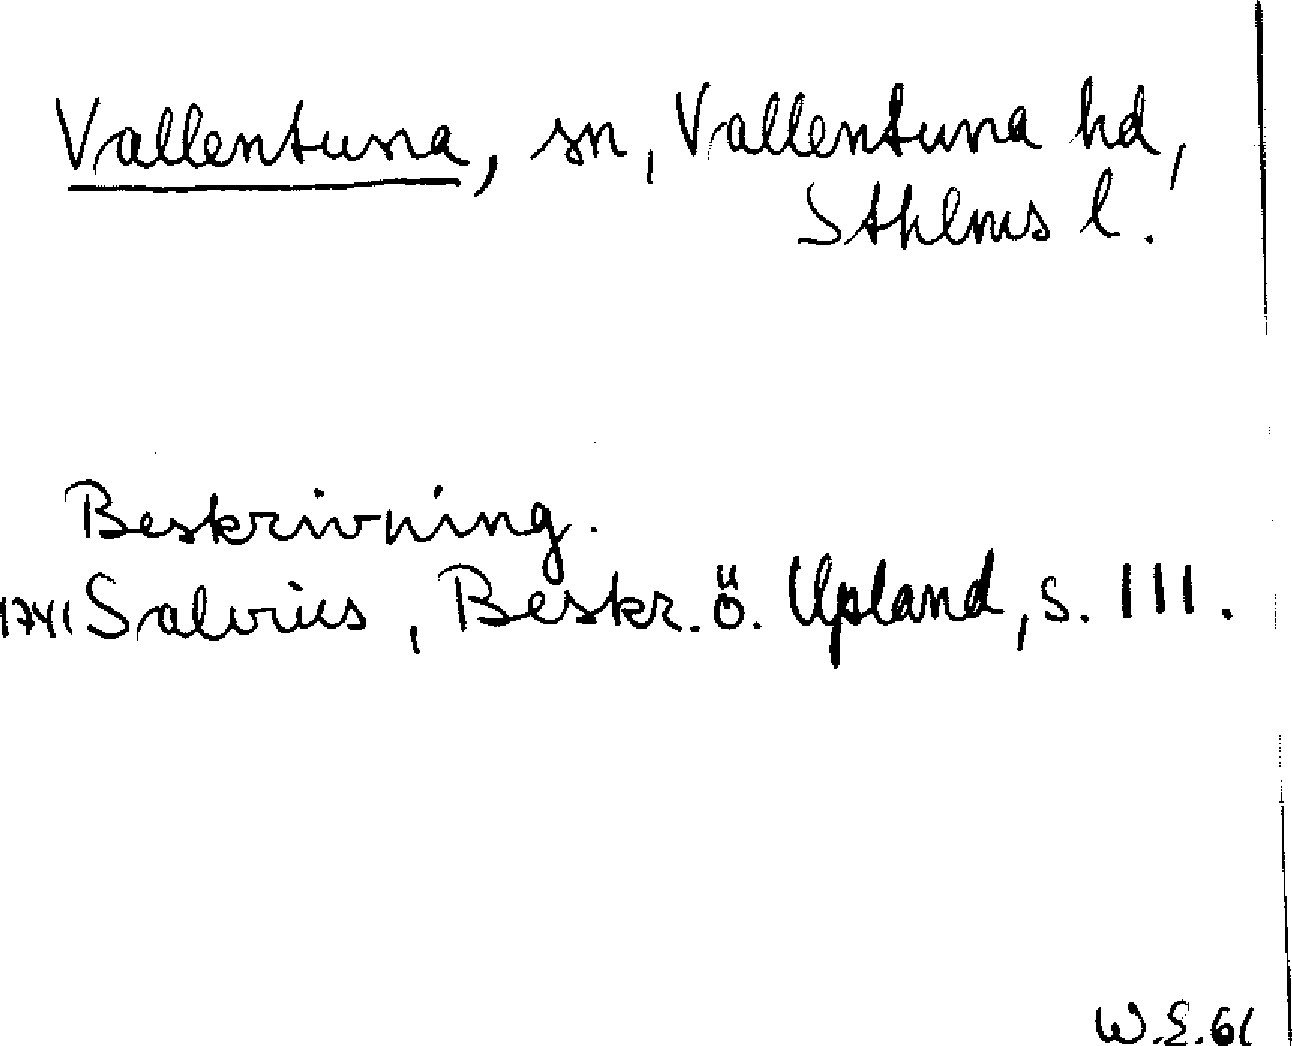 Vallentuna, sn, Vallentuna hd,
Sthlms l.
Beskrivning.
1741 Salvius, Beskr. ö. Upland, s. 111.
W.E. 61